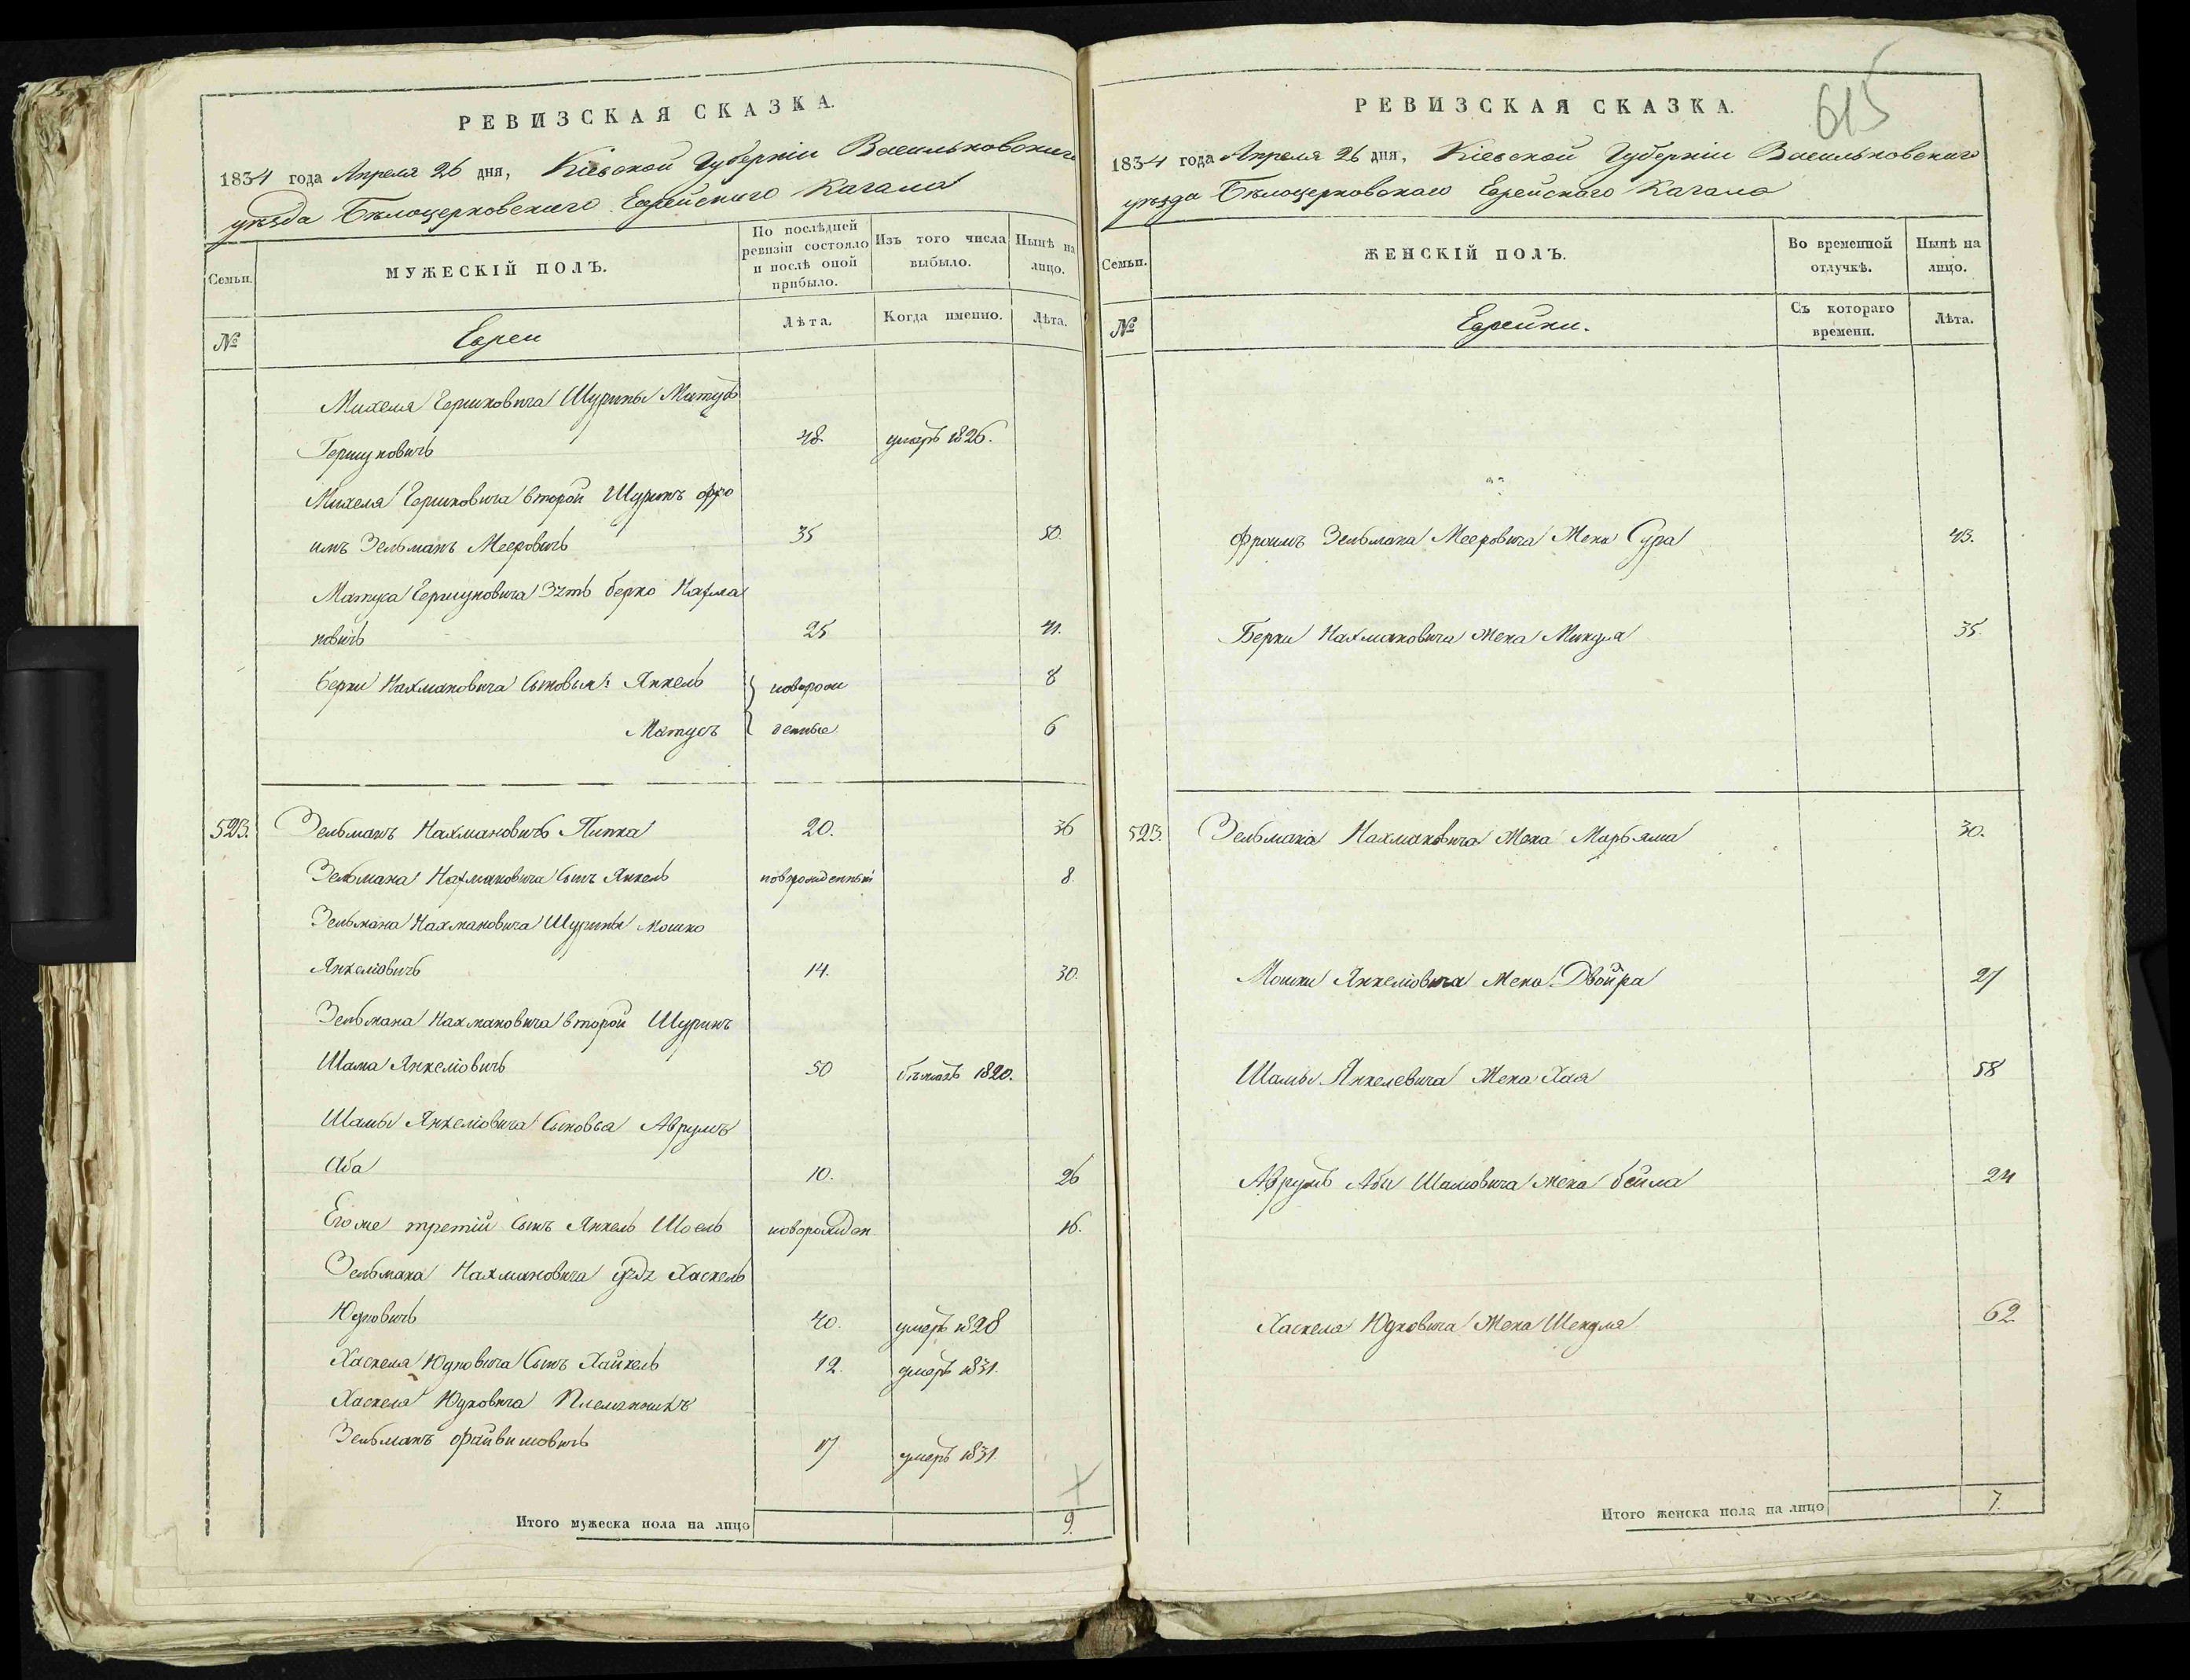 РЕВИЗСКАЯ СКАЗКА.
1834 года Апреля 26 дня, Кіевской Губерніи Васильковскаго
уѣзда Бѣлоцерковскаго Еврейскаго Кагала
Семьи.
МУЖЕСКІЙ ПОЛЪ.
По послѣдней ревизіи состояло и послѣ оной прибыло.
Изъ того числа выбыло.
Нынѣ на лицо.
№
Евреи
Лѣта.
Когда именно.
Лѣта.
Михеля Гершковича Шурины Матусъ
Гершуковичъ 48. умеръ 1826.
Михеля Гершковича второй Шуринъ Фро
имъ Зельманъ Мееровичъ 35 50.
Матуса Гершуковича Зять Берко Нахма
новичъ 25 41.
Берки Нахмановича Сыновья: Янкель новорож 8
Матусъ денные 6
523. Зельманъ Нахмановичъ Пипка 20. 36
Зельмана Нахмановича Сынъ Янкель новорожденный 8.
Зельмана Нахмановича Шурины Мошко
Янкеліовичъ 14. 30.
Зельмана Нахмановича второй Шуринъ
Шама Янкеліовичъ 50 бежалъ 1820.
Шамы Янкеліовича Сыновья Аврумъ
Аба 10. 26
Его же третій Сынъ Янкель Шоель новорожден 16.
Зельмана Нахмановича дядя Хаскель
Юдковичъ 40. умеръ 1828
Хаскеля Юдковича Сынъ Хайкель 12. умеръ 1831.
Хаскеля Юдковича Племянникъ
Зельманъ Файвишовичъ 17 умеръ 1831.
Итого мужеска пола на лицо 9.
615
РЕВИЗСКАЯ СКАЗКА.
1834 года Апреля 26 дня, Кіевской Губерніи Васильковскаго
уѣзда Бѣлоцерковскаго Еврейскаго Кагала
Семьи.
ЖЕНСКІЙ ПОЛЪ.
Во временной отлучкѣ.
Нынѣ на лицо.
№
Еврейки.
Съ котораго времени.
Лѣта.
Фроимъ Зельмана Мееровича Жена Сура 43.
Берки Нахмановича Жена Миндля 35.
523. Зельмана Нахмановича Жена Марьяма 30.
Мошки Янкеліовича Жена Двойра 27
Шамы Янкелевича Жена Хая 58
Аврумъ Абы Шамовича Жена Бейла 24
Хаскеля Юдковича Жена Шендля 62.
Итого женска пола на лицо 7.